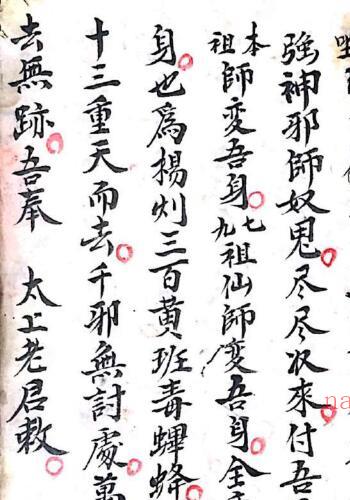 強神邪師奴鬼尽尽收來付吾
本祖師変吾身七九祖仙師変吾身全
身也爲楊刈三百黄班毒蟬蜂
十三重天而去千邪無討處萬
去無跡吾奉 太上老君敕